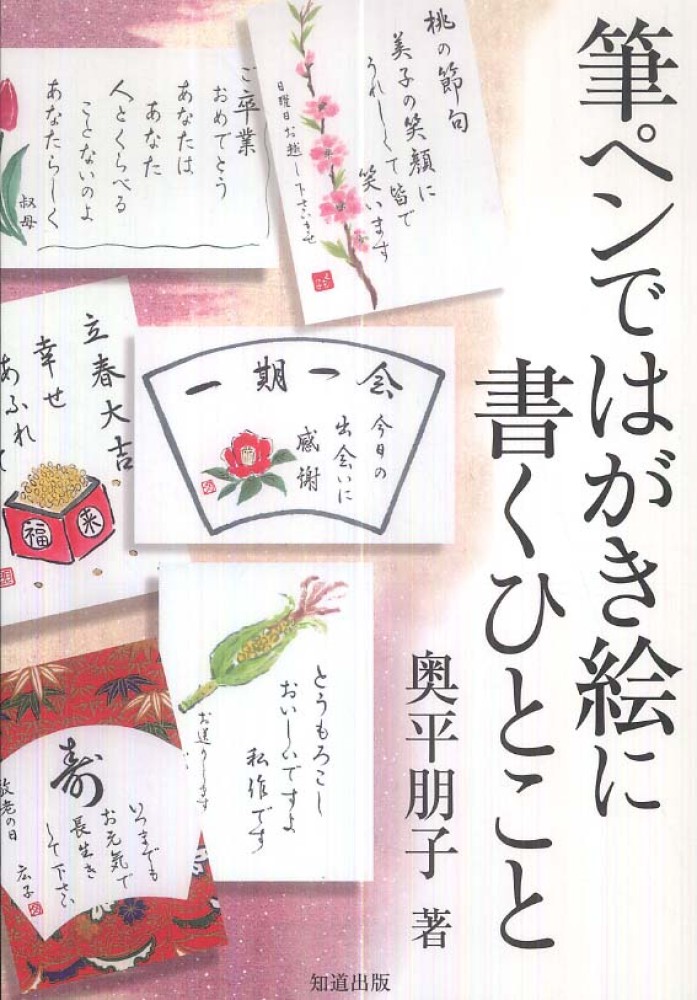 筆ペンではがき絵に
書くひとこと
奥平朋子 著
桃の節句
美子の笑顔に
うれしくて皆で
笑います
日曜日お越し下さいませ
ご卒業
おめでとう
あなたは
あなた
人とくらべる
ことないのよ
あなたらしく
叔母
立春大吉
幸せ
あふれて
福
来
一期一会
今日の
出会いに
感謝
とうもろこし
おいしいですよ
私作です
お送りします
寿
いつまでも
お元気で
長生き
して下さい
敬老の日
広子
知道出版